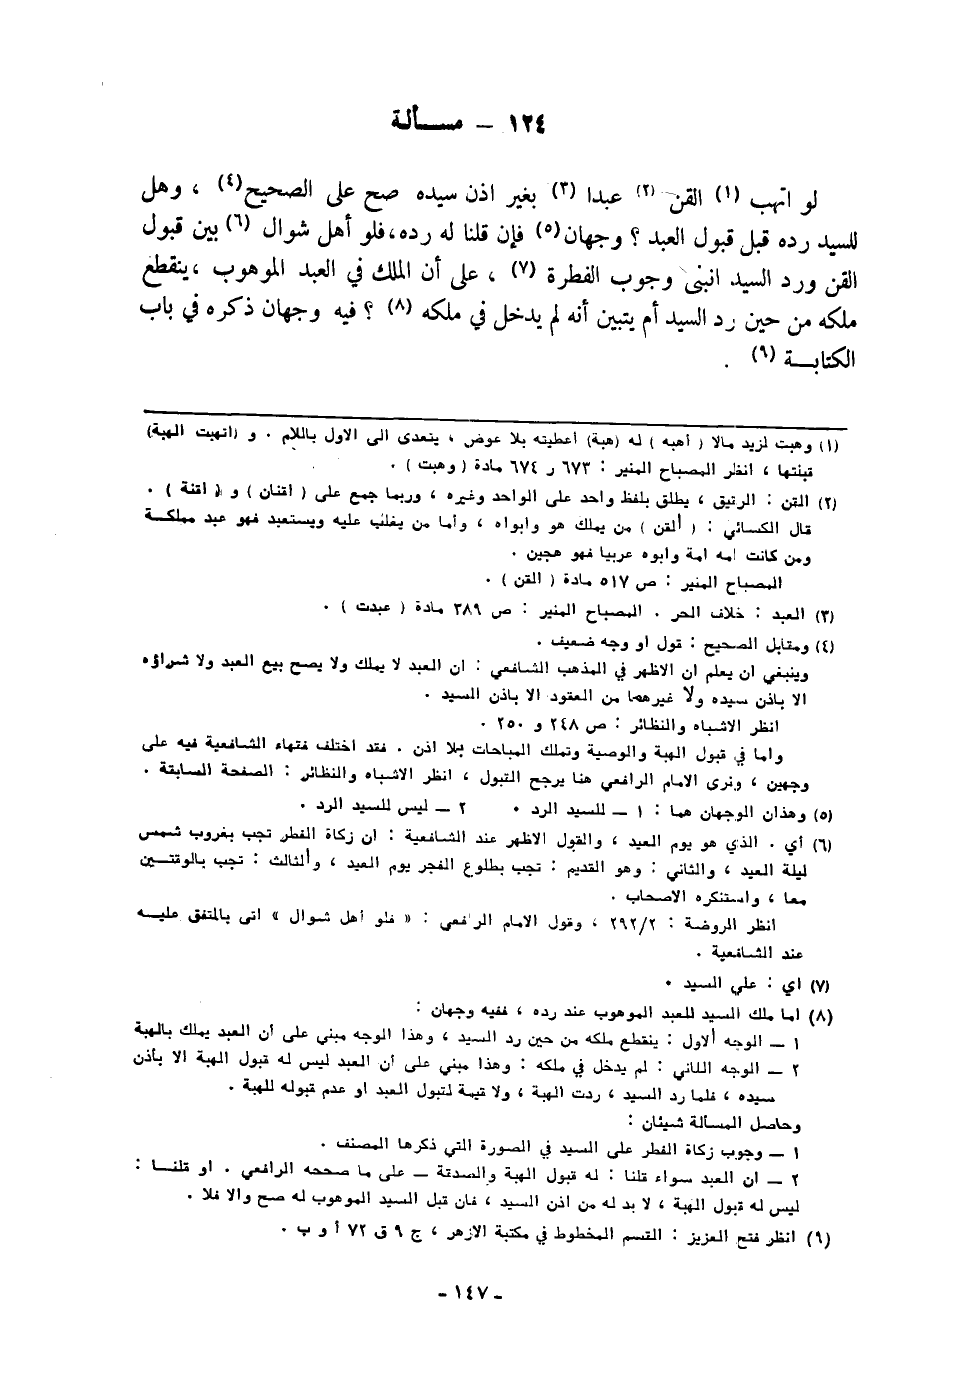 ١٢٤ – مسـألة
لو اتهب (١) القن (٢) عبدا (٣) بغير اذن سيده صح على الصحيح(٤) ، وهل
للسيد رده قبل قبول العبد ؟ وجهان(٥) فإن قلنا له رده،فلو أهل شوال (٦) بين قبول
القن ورد السيد انبنى وجوب الفطرة (٧) ، على أن الملك في العبد الموهوب ،ينقطع
ملكه من حين رد السيد أم يتبين أنه لم يدخل في ملكه (٨) ؟ فيه وجهان ذكره في باب
الكتابـة (٩) .
(١) وهبت لزيد مالا ( أهبه ) له (هبة) أعطيته بلا عوض ، يتعدى الى الاول باللام . و (اتهبت الهبة)
قبلتها ، انظر المصباح المنير : ٦٧٣ ر ٦٧٤ مادة ( وهبت ) .
(٢) القن : الرقيق ، يطلق بلفظ واحد على الواحد وغيره ، وربما جمع على ( اقنان ) و ( اقنة ) .
قال الكسائي : ( ألقن ) من يملك هو وابواه ، وأما من يغلب عليه ويستعبد فهو عبد مملكـة
ومن كانت امه امة وابوه عربيا فهو هجين .
المصباح المنير : ص ٥١٧ مادة ( القن ) .
(٣) العبد : خلاف الحر . المصباح المنير : ص ٣٨٩ مادة ( عبدت ) .
(٤) ومقابل الصحيح : قول او وجه ضعيف .
وينبغي ان يعلم ان الاظهر في المذهب الشافعي : ان العبد لا يملك ولا يصح بيع العبد ولا شراؤه
الا باذن سيده ولا غيرهما من العقود الا باذن السيد .
انظر الاشباه والنظائر : ص ٢٤٨ و ٢٥٠ .
واما في قبول الهبة والوصية وتملك المباحات بلا اذن . فقد اختلف فقهاء الشافعية فيه على
وجهين ، ونرى الامام الرافعي هنا يرجح القبول ، انظر الاشباه والنظائر : الصفحة السابقة .
(٥) وهذان الوجهان هما : ١ – للسيد الرد . ٢ – ليس للسيد الرد .
(٦) أي . الذي هو يوم العيد ، والقول الاظهر عند الشافعية : ان زكاة الفطر تجب بغروب شمس
ليلة العيد ، والثاني : وهو القديم : تجب بطلوع الفجر يوم العيد ، وألثالث : تجب بالوقتـين
معا ، واستنكره الاصحاب .
انظر الروضة : ٢٩٢/٢ ، وقول الامام الرافعي : « فلو أهل شوال » اتى بالمتفق عليـه
عند الشافعية .
(٧) اي : على السيد .
(٨) اما ملك السيد للعبد الموهوب عند رده ، ففيه وجهان :
١ – الوجه ألاول : ينقطع ملكه من حين رد السيد ، وهذا الوجه مبني على أن العبد يملك بالهبة
٢ – الوجه الثاني : لم يدخل في ملكه : وهذا مبني على أن العبد ليس له قبول الهبة الا بأذن
سيده ، فلما رد السيد ، ردت الهبة ، ولا قيمة لقبول العبد او عدم قبوله للهبة .
وحاصل المسألة شيئان :
١ – وجوب زكاة الفطر على السيد في الصورة التي ذكرها المصنف .
٢ – ان العبد سواء قلنا : له قبول الهبة والصدقة – على ما صححه الرافعي . او قلنـا :
ليس له قبول الهبة ، لا بد له من اذن السيد ، فان قبل السيد الموهوب له صح والا فلا .
(٩) انظر فتح العزيز : القسم المخطوط في مكتبة الازهر ، ج ٩ ق ٧٢ أ و ب .
- ١٤٧ -